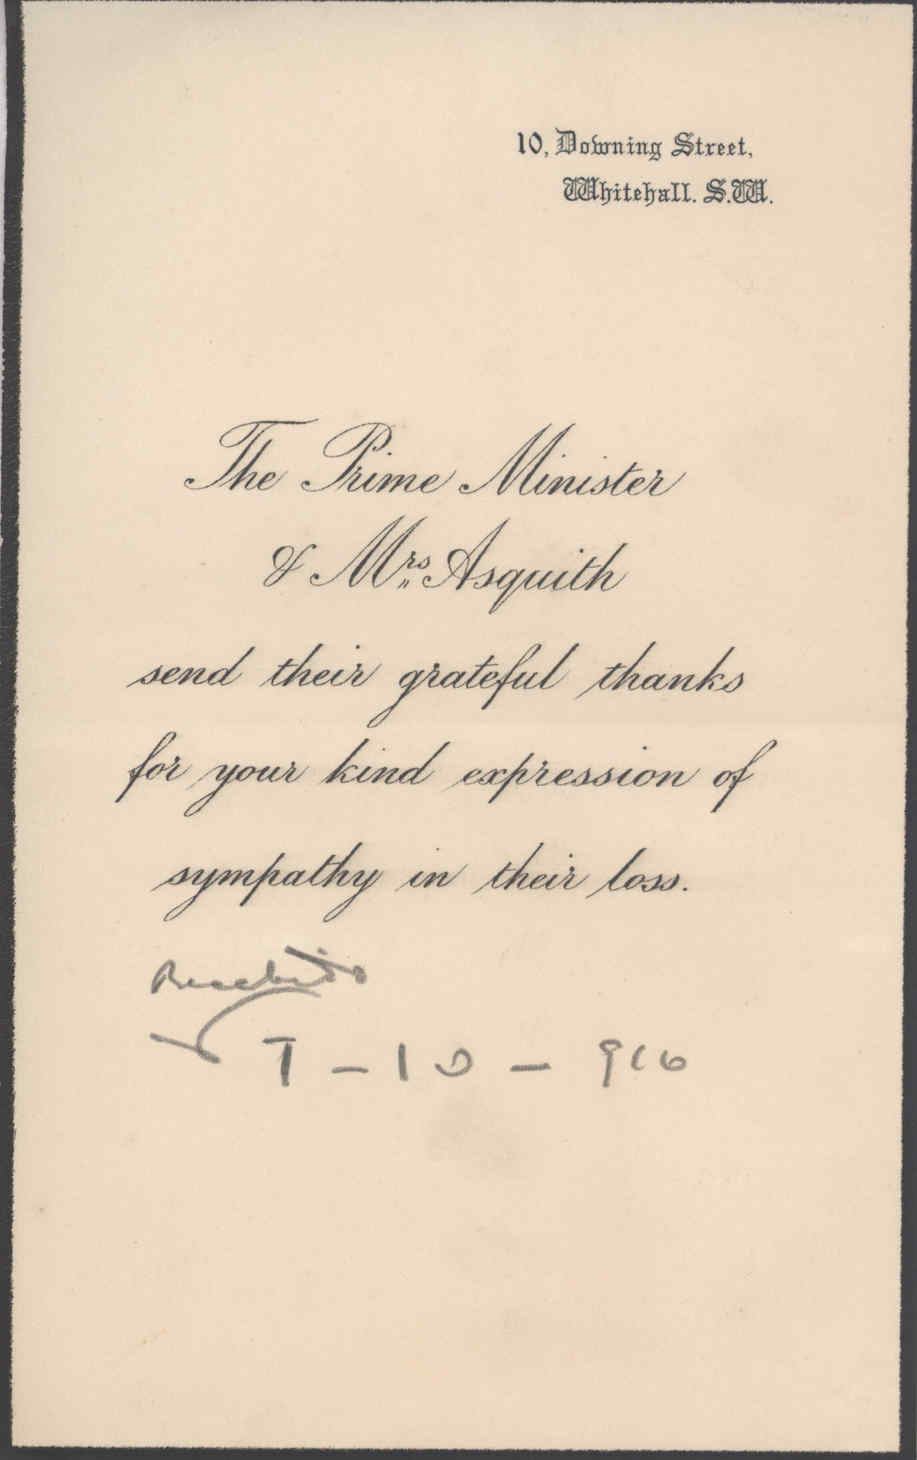 10, Downing Street,
Whitehall. S.W.
The Prime Minister
& Mrs Asquith
send their grateful thanks
for your kind expression of
sympathy in their loss.
- 10 - 916